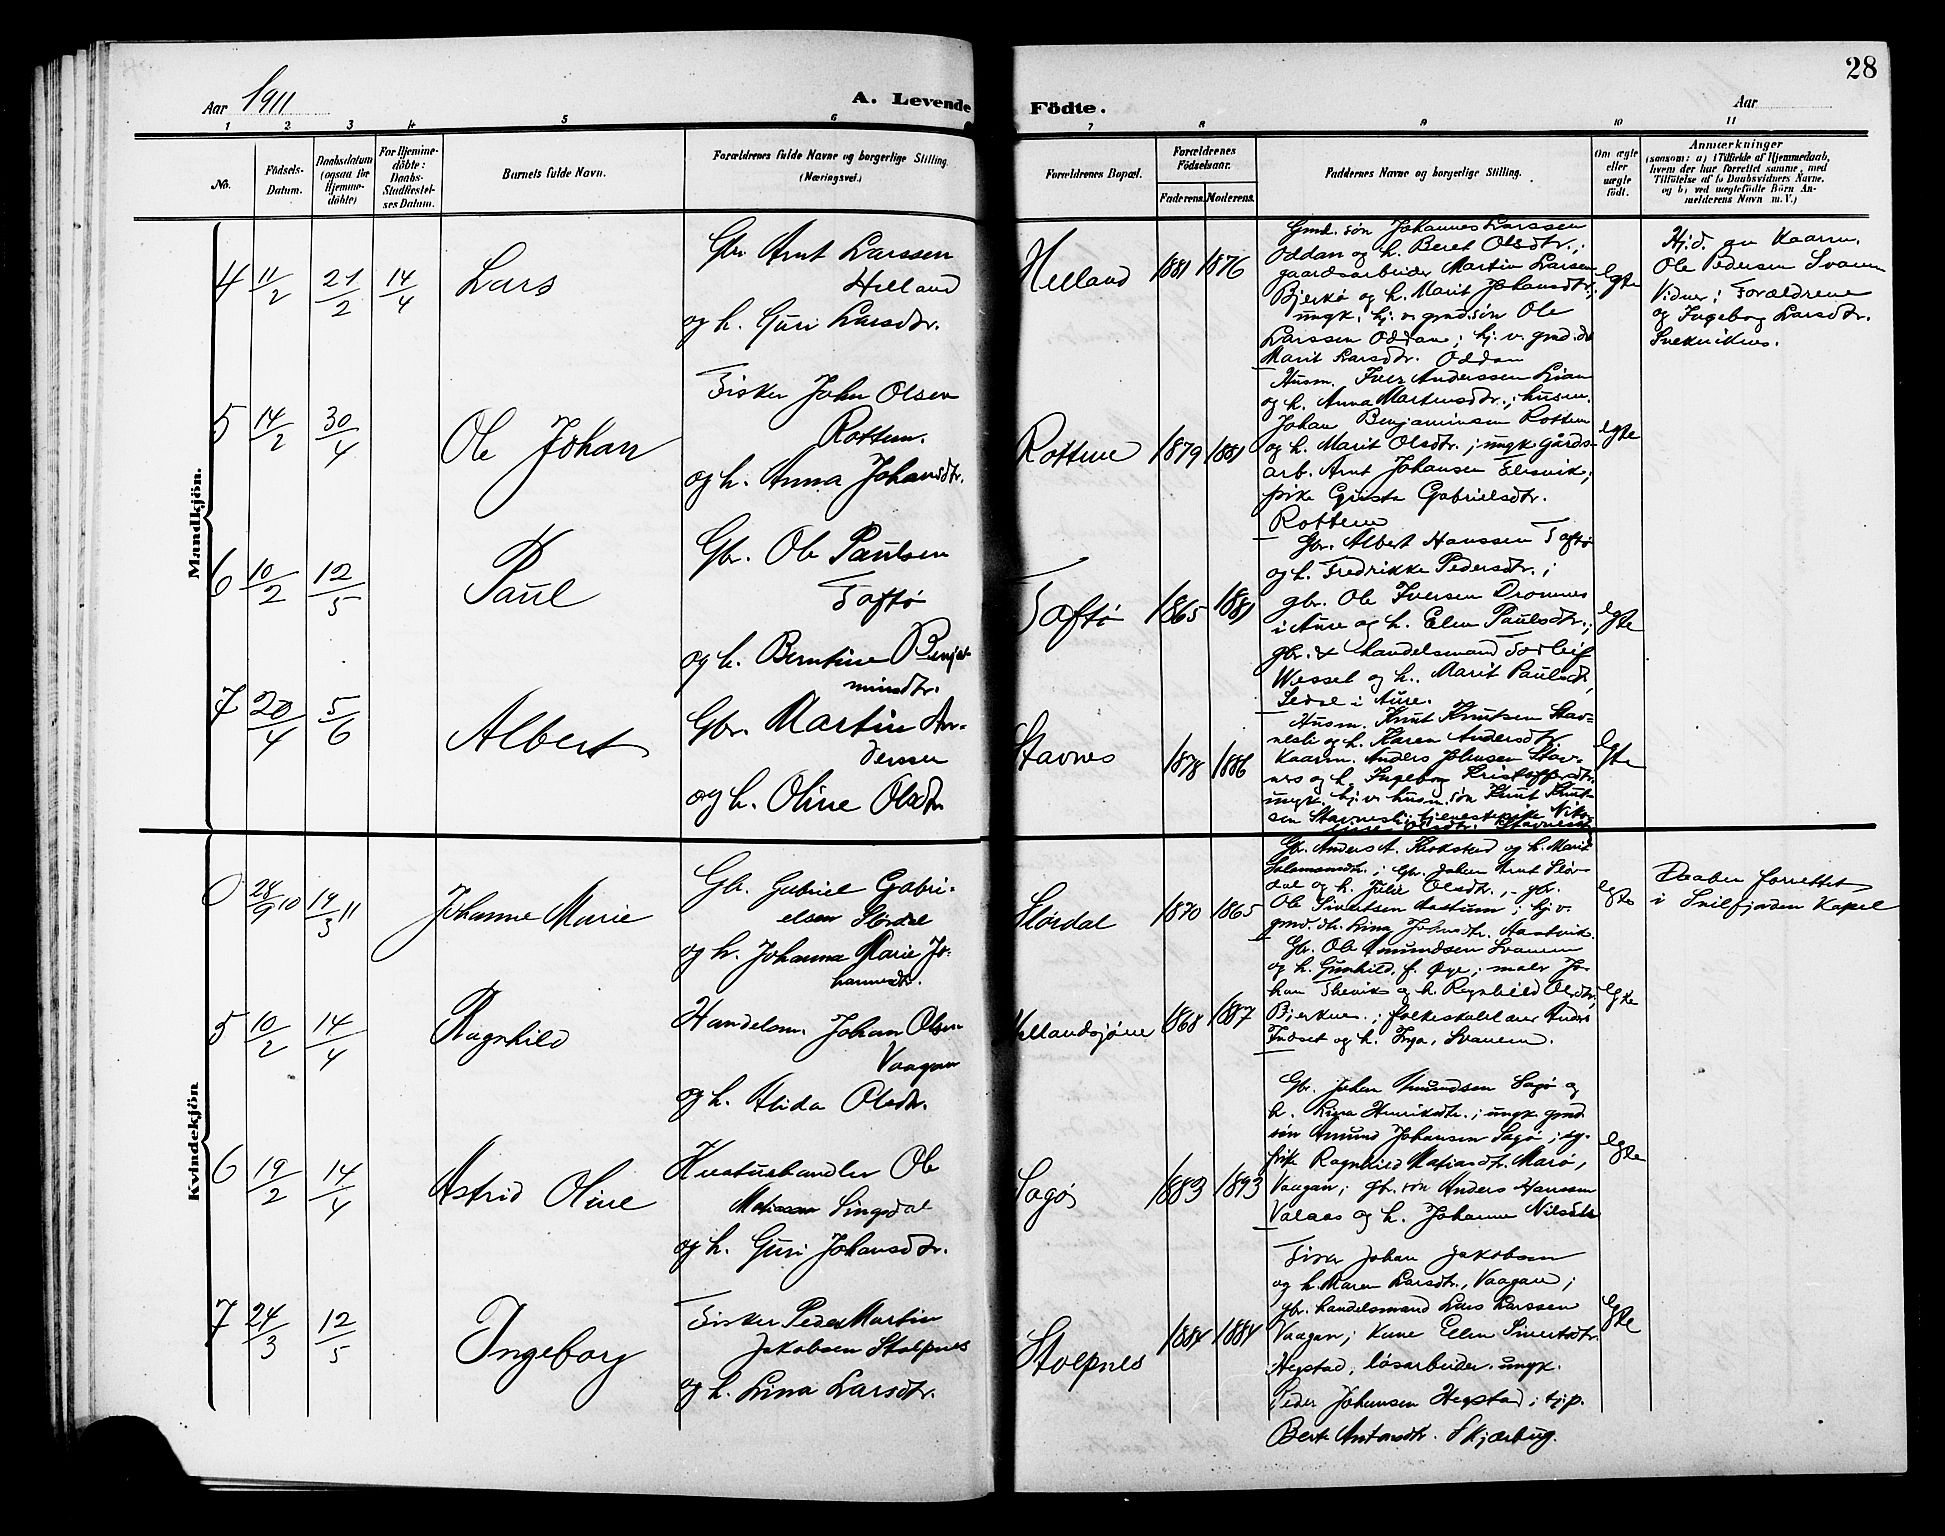 28
Aar 1911
A. Levende Födte.
Aar
1 2 3 4 5 6 7 8 9 10 11
No.
Födsels-
Datum.
Daabsdatum
(ogsaa for
Hjemme-
döbte)
For Hjemme-
döbte:
Daabs-
Stadfæstel-
ses Datum.
Barnets fulde Navn.
Forældrenes fulde Navne og borgerlige Stilling.
(Næringsvei.)
Forældrenes Bopæl.
Forældrenes
Födselsaar.
Faderens. Moderens.
Faddernes Navne og borgerlige Stilling.
Om ægte
eller
uægte
födt.
Anmærkninger
(saasom: a) i Tilfælde af Hjemmedaab,
hvem der har forrettet samme, med
Tilföielse af to Daabsvidners Navne,
og b) ved uægtefödte Börn An-
melderens Navn m. V.)
Mandkjön.
4 11/2 21/2 14/4 Lars
Gbr. Arnt Larssen
Helland
og h. Guri Larsdtr.
Helland 1881 1876
Gmd. sön Johannes Larssen
Oddan og h. Beret Olsdtr.;
gaardsarbeider Martin Larsen
Bjerkö og h. Marit Johansdtr.;
ungk. hj. v. gmd. sön Ole
Larssen Oddan; hj. v. gmd. dt.
Marit Larsdtr. Oddan
Egte
Hjd. av Kaarm.
Ole Pedersen Svanem
Vidner: Forældrene
og Ingebog Larsdtr.
5 14/2 30/4 Ole Johan
Fisker John Olsen
Rottem.
og h. Anna Johansdtr.
Rottem 1879 1881
Husm. Iver Anderssen Lian
og h. Anna Martinsdtr.; husm.
Johan Benjaminsen Rottem
og h. Marit Olsdtr.; ungk gårds-
arb. Arnt Johansen
pike Gabrielsdtr.
Rottem
Egte
6 10/2 12/5 Paul
Gbr. Ole Paulsen
Taftö
og h. Berntine Benja-
minsdtr.
Taftö 1865 1881
Gbr. Albert Hanssen Taftö
og h. Fredrikke Pedersdtr.;
gbr. Ole Iversen Dromnes
i Aure og h. Elen Paulsdtr.;
gbr. & handelsmand Torleif
Wessel og h. Marit Paulsdtr,
i Aure.
Egte
7 20/4 5/6 Albert
Gbr. Martin An-
dersen
og h. Oline Olsdtr.
Stavnes 1878 1886
Husm. Knut Knutsen Stav-
nesli og h. Karen Andersdtr.
Kaarm. Anders Johnsen Stav-
nes og h. Ingebog Kristoffersdtr.
ungk. hj. v. husm. sön Knut Knut-
sen Stavnesli; tjenestepike Niko-
Egte
Kvindekjön
0 28/9 10 14/3 11 Johanne Marie
Gbr. Gabriel Gabri-
elsen Slördal
og h. Johanna Marie Jo-
hannesdtr.
Slördal 1870 1865
Gbr. Anders A. Krokstad og h. Marit
Salamonsdtr.; Gbr. Johan Arnt Slör-
dal og h. Julie Olsdtr.; gbr.
Ole Sivertsen Aastum; hj. v.
gmd. dtr. Lina Johnsdtr. Aastvik.
Egte
Daaben forrettet
i Snilfjorden Kapel
5 10/2 14/4 Ragnhild
Handelsm. Johan Olsen
Vaagan
og h. Alida Olsdtr.
Hellandsjöen 1868 1887
Gbr. Ole Amundsen Svanem
og h. Gunhild f. Öye; maler Jo-
han og h. Ragnhild Olsdtr,
Bjerknes; folkeskolelærer
og h. Inga, Svanem.
Egte
6 19/2 14/4 Astrid Oline
Kreaturhandler Ole
Matiassen Singsdal
og h. Guri Johansdtr.
Sagö 1883 1893
Gbr. Johan Amundsen Sagö og
h. Henriksdtr.; ungk. gmd
sön Amund Johansen Sagö; ug.
pike Ragnhild Matiasdtr. Marö,
Vaagan; gbr. sön Anders Hanssen
Valaas og h. Johanna Nilsdtr.
Egte
7 24/3 12/5 Ingeborg
Fisker Peder Martin
Jakobsen Stolpnes
og h. Lina Larsdtr.
Stolpnes 1884 1884
Fisker Johan Jakobsen
og h. Maren Larsdtr., Vaagan;
gbr. handelsmand Lars Larssen
Vaagan; Kone Ellen Sivertsdtr.
Hegstad, lösarbeider. ungk.
Peder Johansen Hegstad; tj.p.
Berte Antonsdtr. Skjærbug.
Egte